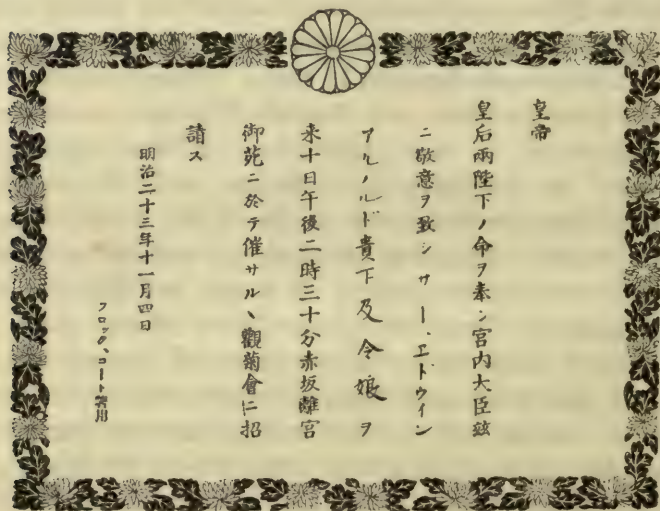 皇帝
皇后兩陛下ノ命ヲ奉シ宮内大臣玆
ニ敬意ヲ致シサー、エドウイン
アルノルド貴下及令娘ヲ
来十日午後二時三十分赤坂離宮
御苑ニ於テ催サル、觀菊會ニ招
請ス
明治二十三年十一月四日
フロック、コート著用